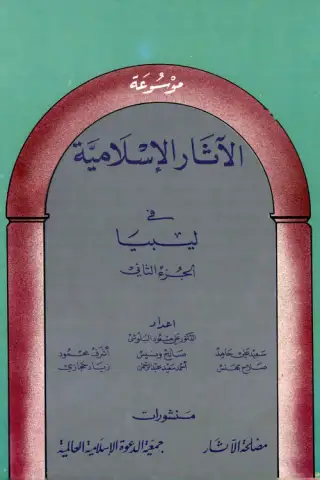 موسوعة
الآثار الإسلامية
في
ليبيا
الجزء الثاني
إعداد
الدكتور علي مسعود البلوشي
سعيد علي حامد صالح ونيس أشرف محمود
صلاح بهنسي أحمد سعيد عبدالرحمن
منشورات
مصلحة الآثار جمعية الدعوة الإسلامية العالمية